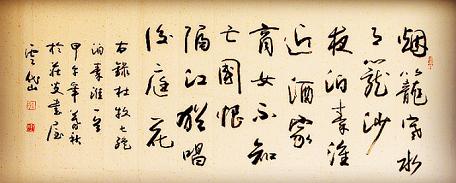 烟籠寒水
月籠沙
夜泊秦淮
近酒家
商女不知
亡國恨
隔江猶唱
後庭花
右録杜牧七絶
泊秦淮一首
甲午年秋
於書屋